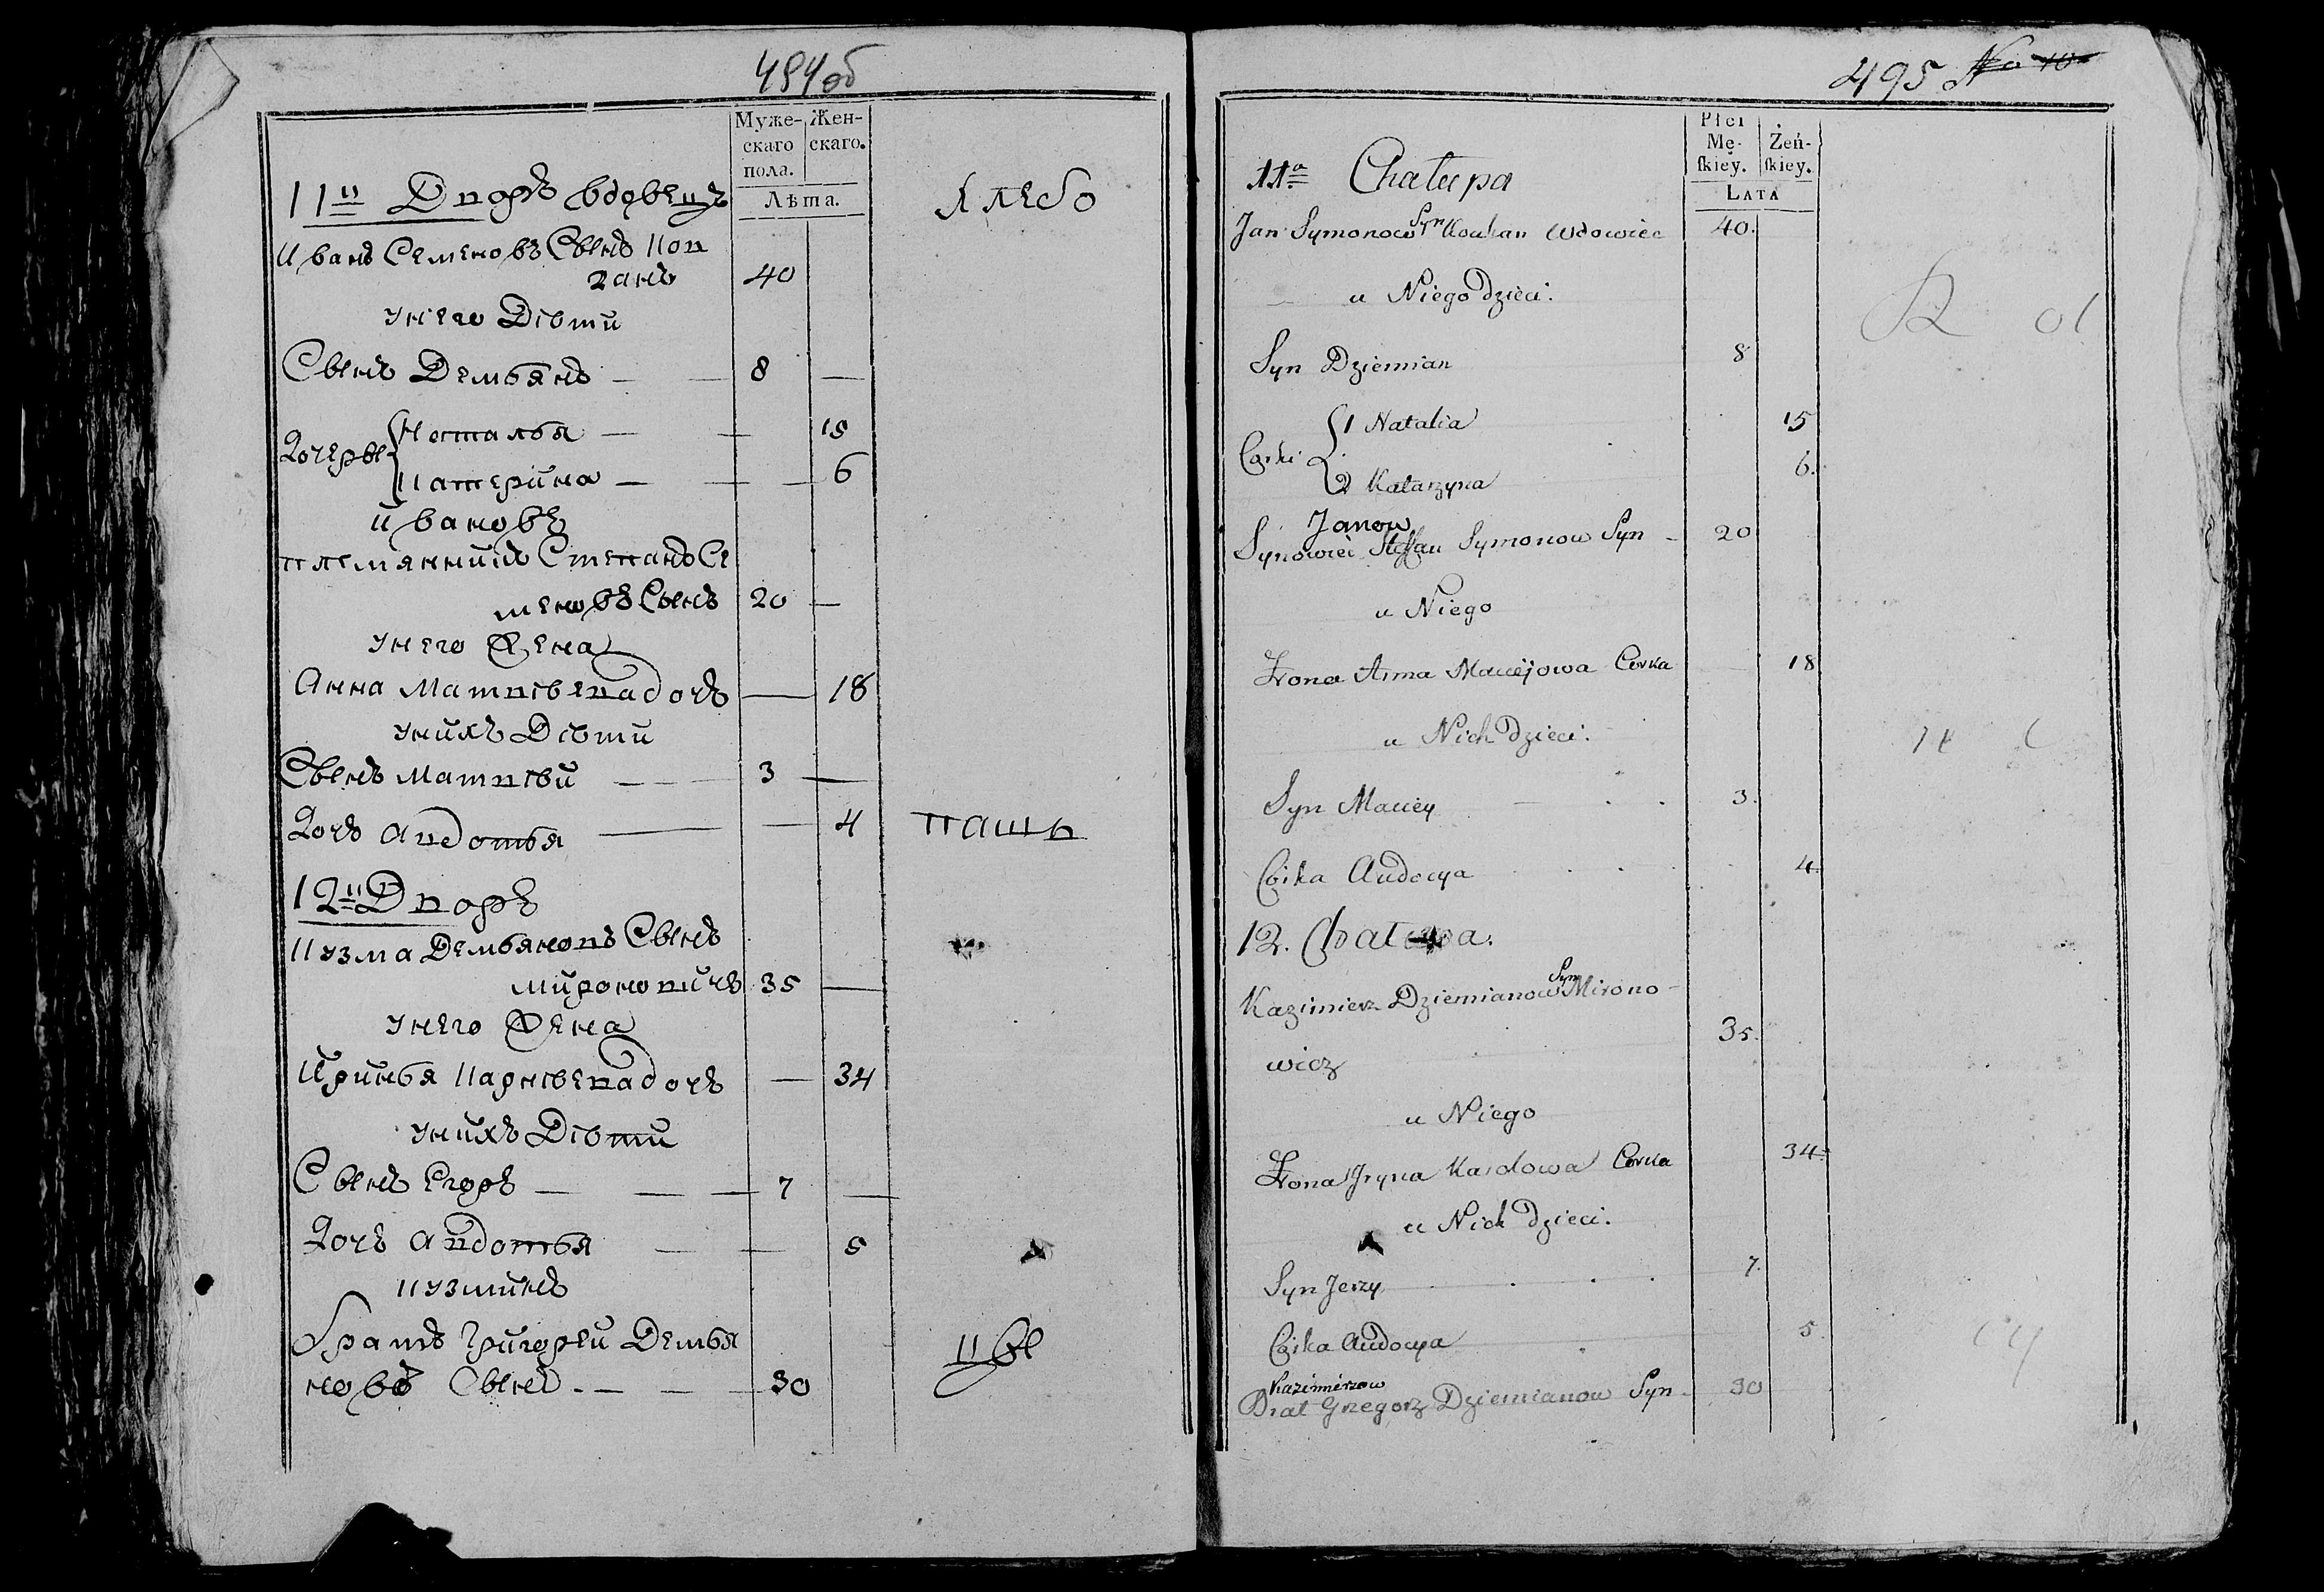 494об
Муже-
скаго
пола.
Жен-
скаго.
Лѣта.
11й Дворъ вдовецъ
Иванъ Семеновъ Сынъ Ков
ганъ 40
унего Дѣти
Сынъ Демьянъ — 8 —
Дочеры
Наталья — 15
Катерина — 6
Ивановъ
племянникъ Степанъ Се
меновъ Сынъ 20 —
унего Жена
Анна Матвѣева дочь — 18
унихъ Дѣти
Сынъ Матвѣй — 3 —
Дочь Авдотья — 4
12й Дворъ
Кузма Демьяновъ Сынъ
Мироновичъ 35 —
унего Жена
Ириньа Карнѣева дочь — 34
унихъ Дѣти
Сынъ Егоръ — 7 —
Дочь Авдотья — 5
Кузминъ
братъ Григорей Демья
новъ Сынъ — 30
хлебо
пашь
цы
495 No 10
Płci
Mę-
skiey.
Żeń-
skiey.
LATA
11a Chałupa
Jan Symonow Syn Kouhan Wdowiec 40.
u Niego dzieci.
Syn Dziemian 8
Corki
1 Natalia 15
2 Katarzyna 6.
Janow
Synowiec Steffan Symonow Syn 20
u Niego
Żona Anna Maciejowa Corka 18
u Nich dzieci.
Syn Maciey 3.
Corka Audocya 4.
12. Chałupa.
Kazimierz Dziemianow Syn Mirono-
wicz 35.
u Niego
Żona Iryna Karolowa Corka 34.
u Nich dzieci.
Syn Jerzy 7.
Corka Audocya 5
Kazimierzow
Brat Grzegorz Dziemianow Syn 30